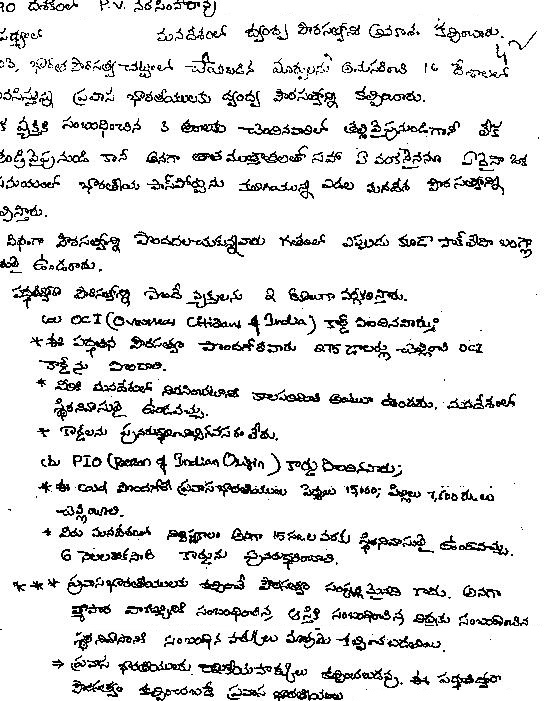 90 దశకంలో P.V. నరసింహారావు
మనదేశంలో ద్వంద్వ పౌరసత్వానికి అవకాశం కల్పించారు.
03, భారత పౌరసత్వ చట్టంలో చేయబడిన మార్పులను అనుసరించి 16 దేశాలలో
ప్రవాస భారతీయులకు ద్వంద్వ పౌరసత్వాన్ని కల్పించారు.
వ్యక్తికి సంబంధించిన 3 తరాలకు చెందినవారిలో తల్లి వైపునుండిగానీ లేక
తండ్రి వైపునుండి కానీ అనగా తాత ముత్తాతలతో సహా ఏ ఒక్కరైనను ఏదైనా ఒక
సమయంలో భారతీయ పాస్‌పోర్టును కలిగియున్న ఎడల మనదేశ పౌరసత్వాన్ని
విధంగా పౌరసత్వాన్ని పొందదలచుకున్నవారు గతంలో ఎప్పుడు కూడా పాక్ లేదా బంగ్లా
ఉండరాదు.
పౌరసత్వాన్ని పొందే వ్యక్తులను 2 రకాలుగా వర్గీకరించారు.
OCI (Overseas Citizens of India) కార్డ్ పొందినవారు
* ఈ పద్ధతిన పౌరసత్వం పొందగోరేవారు 275 డాలర్లు చెల్లించి OCI
కార్డ్‌ను పొందాలి.
* వీరికి మనదేశంలో నివసించుటకు కాలపరిమితి అంటూ ఉండదు. మనదేశంలో
స్థిరనివాసులై ఉండవచ్చు.
* కార్డులను పునరుద్ధరించాల్సిన అవసరం లేదు.
PIO (Person of Indian Origin) కార్డు పొందినవారు;
* ఈ కార్డు పొందగోరే ప్రవాస భారతీయులు పెద్దలు 15,000; పిల్లలు 7,500 రూ.లు
చెల్లించాలి.
* వీరు మనదేశంలో అనగా 15 సం.ల వరకు స్థిరనివాసులై ఉండవచ్చు.
6 నెలలకొకసారి కార్డును పునరుద్ధరించాలి.
* * * ప్రవాస భారతీయులకు కల్పించే పౌరసత్వం సంపూర్ణమైనది కాదు. అనగా
వ్యాపార వాణిజ్యానికి సంబంధించిన, ఆస్తికి సంబంధించిన విద్యకు సంబంధించిన
స్థిరనివాసానికి సంబంధిన హక్కులు మాత్రమే కల్పించబడతాయి.
→ ప్రవాస భారతీయులకు రాజకీయ హక్కులు కల్పించబడవు. ఈ పద్ధతి ద్వారా
పౌరసత్వం కల్పించబడే ప్రవాస భారతీయులు